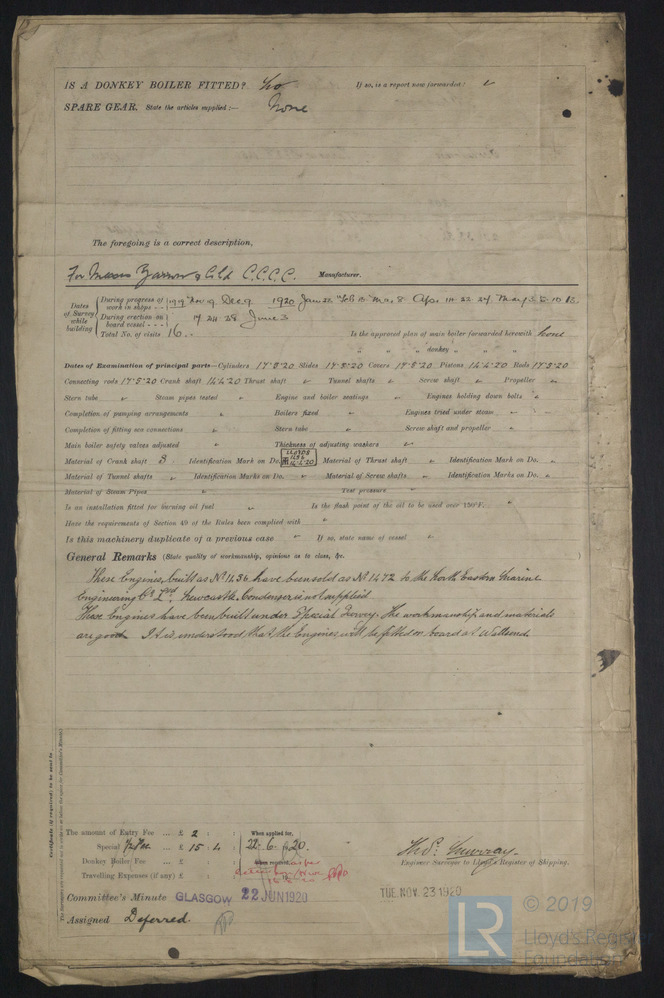 IS A DONKEY BOILER FITTED? No If so, is a report now forwarded? ✓
SPARE GEAR. State the articles supplied:— None
The foregoing is a correct description,
For Messrs Yarrow & Co Ld Manufacturer.
Dates of Survey while building
During progress of work in shops - - 1919 Nov 9 Dec 9 1920 Jan 22 Feb Mar 8 Apr 14 22 27 May 3 5 10 13
During erection on board vessel - - - 17 24 28 June 3
Total No. of visits 16. Is the approved plan of main boiler forwarded herewith None
" " " donkey " " "
Dates of Examination of principal parts—Cylinders 17·5·20 Slides 17·5·20 Covers 17·5·20 Pistons 14·4·20 Rods 17·5·20
Connecting rods 17·5·20 Crank shaft 14·4·20 Thrust shaft Tunnel shafts Screw shaft Propeller
Stern tube Steam pipes tested Engine and boiler seatings Engines holding down bolts
Completion of pumping arrangements Boilers fixed Engines tried under steam
Completion of fitting sea connections Stern tube Screw shaft and propeller
Main boiler safety valves adjusted Thickness of adjusting washers
Material of Crank shaft S Identification Mark on Do. LLOYDS 1256 14·4·20 Material of Thrust shaft Identification Mark on Do.
Material of Tunnel shafts Identification Marks on Do. Material of Screw shafts Identification Marks on Do.
Material of Steam Pipes Test pressure
Is an installation fitted for burning oil fuel Is the flash point of the oil to be used over 150°F.
Have the requirements of Section 49 of the Rules been complied with
Is this machinery duplicate of a previous case If so, state name of vessel
General Remarks (State quality of workmanship, opinions as to class, &c.)
These Engines, built as No 1256 have been sold as No 1472 to the North Eastern Marine
Engineering Co Ltd. Newcastle. Condenser is not supplied.
These Engines have been built under Special Survey. The workmanship and materials
are good. It is understood that the Engines will be fitted on board at Wallsend.
Certificate (if required) to be sent to
The amount of Entry Fee ... £ 2 : : When applied for,
Special ... £ 15·4 : 22·6·1920.
Donkey Boiler Fee ... £ : : When received,
Travelling Expenses (if any) £ : :
Thos. Murray.
Engineer Surveyor to Lloyd's Register of Shipping.
Committee's Minute GLASGOW 22 JUN 1920 TUE. NOV. 23 1920
Assigned Deferred.
© 2019
LR
Lloyd's Register
Foundation